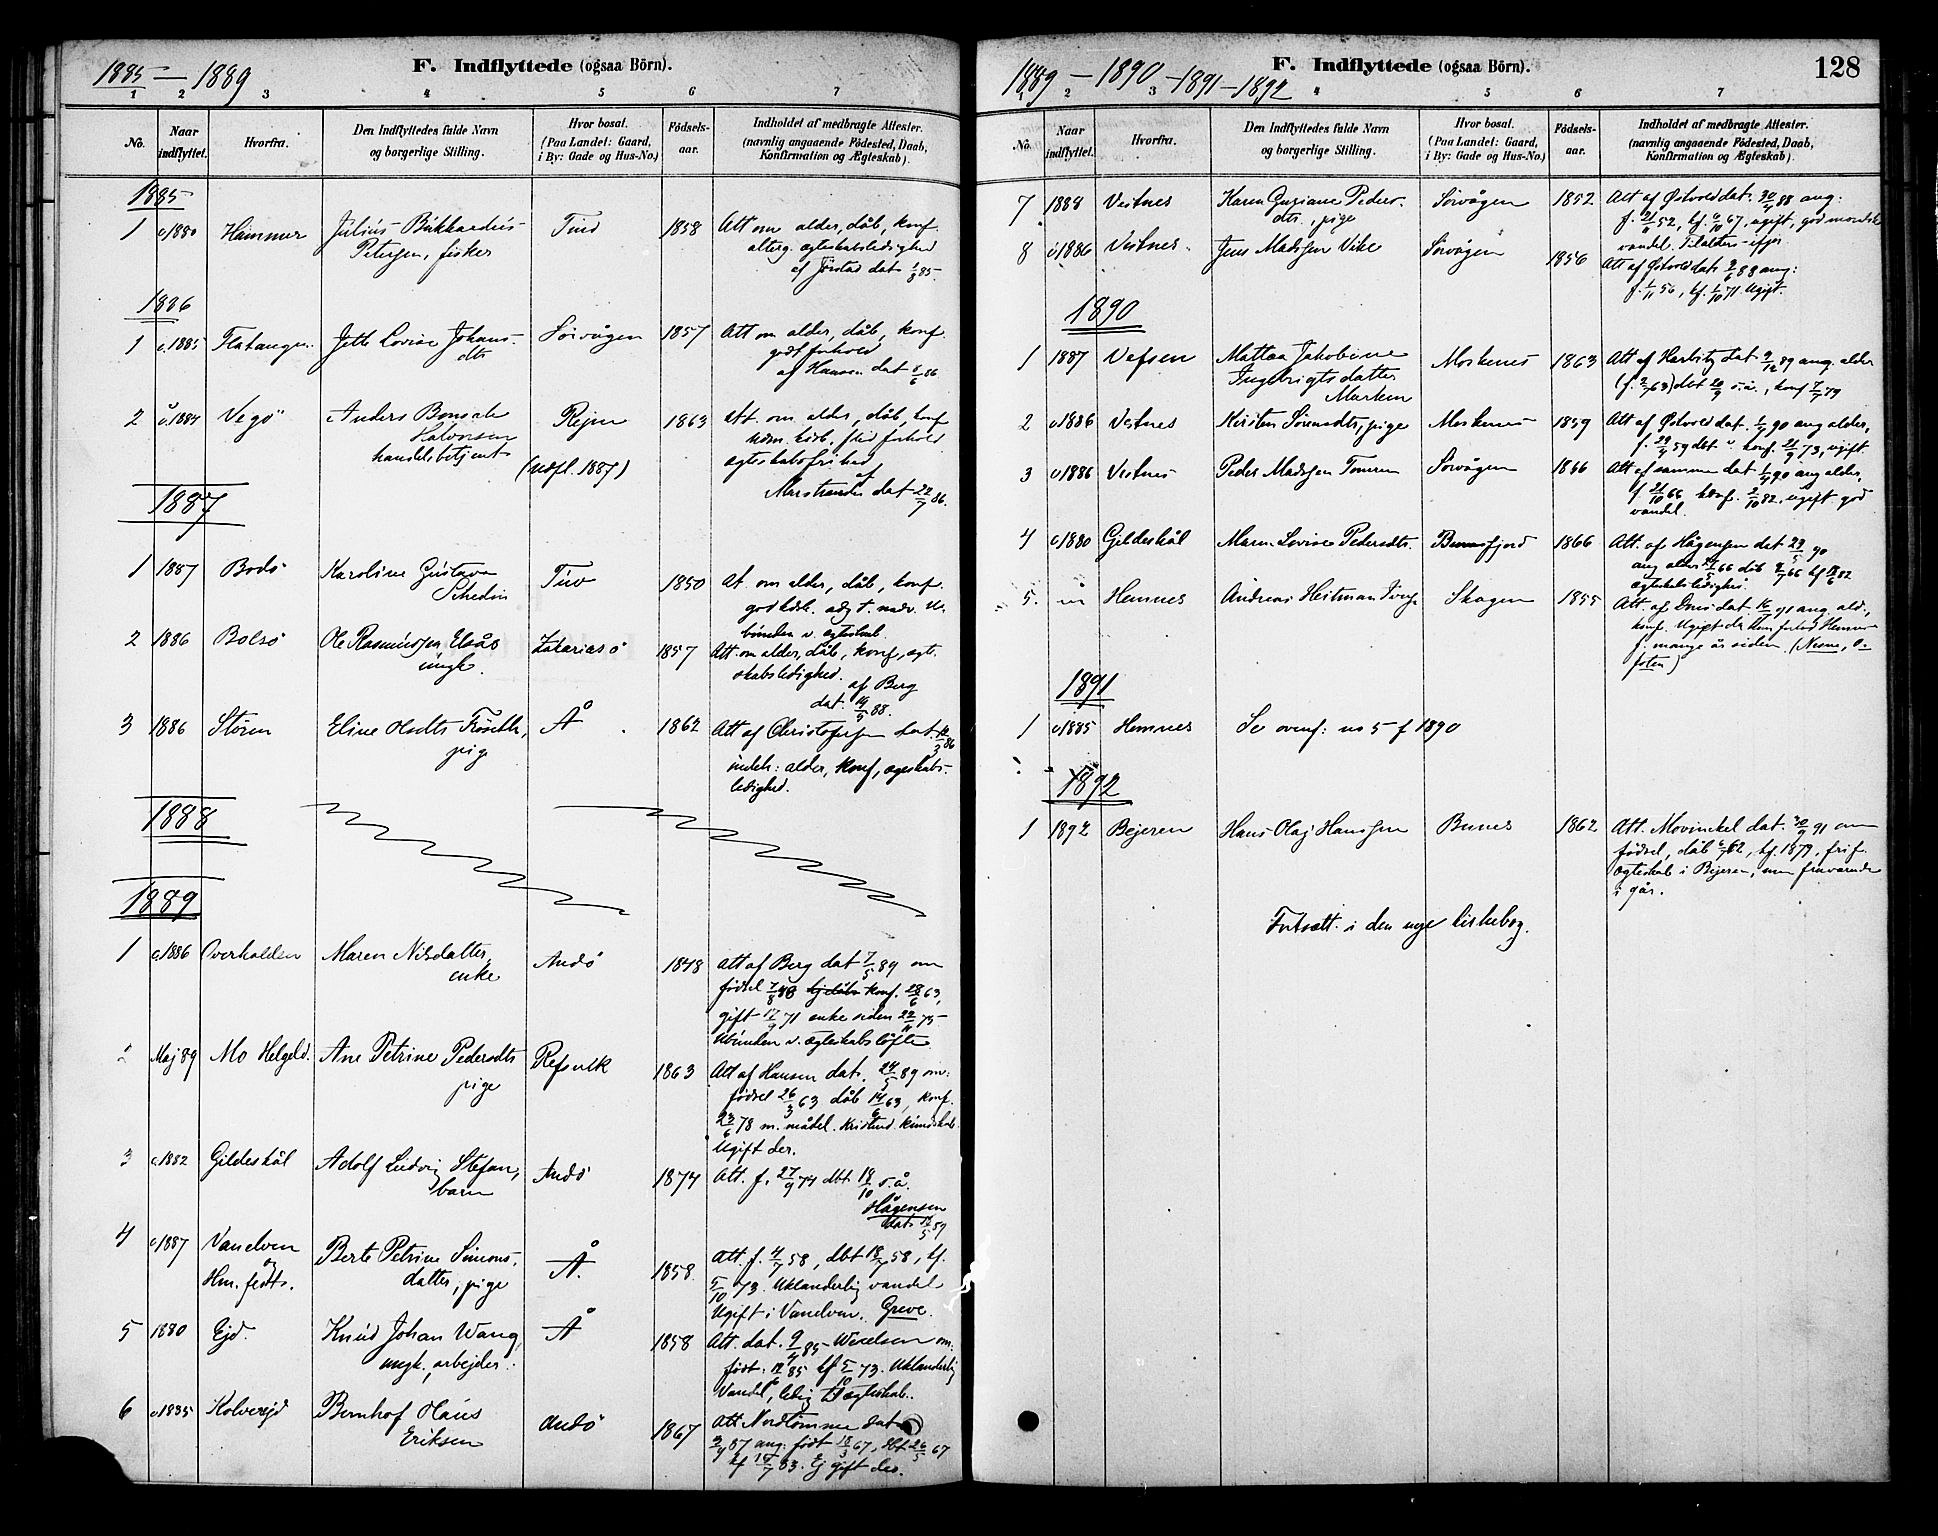 1885 — 1889
F. Indflyttede (ogsaa Börn).
1 2 3 4 5 6 7
No.
Naar indflyttet.
Hvorfra.
Den Indflyttedes fulde Navn og borgerlige Stilling.
Hvor bosat. (Paa Landet: Gaard, i By: Gade og Hus-No.)
Fødsels-aar.
Indholdet af medbragte Attester. (navnlig angaaende Fødested, Daab, Konfirmation og Ægteskab).
1885
1 1880 Hammer Julius
Petersen, fisker
Tind 1858 Att om alder, dåb, konf.
af Jörstad dat 1/8 85
1886
1 1885 Flatanger Jette Lovise Johans-
dtr
Sörvågen 1857 Att om alder, dåb, konf
godt forhold
af Hansen dat 5/6 86
2 1884 Vegö Anders
Halvorsen
handelsbetjent
Rejne
(udfl. 1887)
1863 Att. om alder, dåb, konf
ægteskabsfrihed
af
dat 22/7 86.
1887
1 1887 Bodö Karoline Gustava
Schedin
Tind 1850 At. om alder, dåb, konf.
2 1886 Bolsö Ole Rasmussen Elsås
ungk.
Zakariasö 1857 Att om alder, dåb, konf, ægt.
skabsledighed.
af Berg
dat. 14/5 88.
3 1886 Stören Eline Olsdtr
pige
Å 1862 Att af Christophersen dat.
indeh: alder, konf, ægteskabs-
ledighed.
1888
1889
1 1886 Overhalden Maren Nilsdatter,
enke
Andö 1848 Att af Berg dat 7/5 89 om
födsel 7/8 48 konf. 28/6 63,
gift 17/9 71 enke siden 22/11 75
Ubunden v. ægteskabslöfte.
2 Maj 89 Mo Helgeld. Ane Petrine Pedersdtr
pige
Refsvik 1863 Att af Hansen dat. 24/5 89 om:
födsel 26/3 63 dåb 14/6 63, konf.
23/6 78 m. mådel. Kristend. kundskab.
Ugift der.
3 1882 Gildeskål Adolf Ludvig Stefans,
barn
Andö 1874 Att. f. 27/9 74 dbt 18/10 s.å.
Hågensen
4 1887 Vanelven
og
Hm. fedts.
Berte Petrine Simons-
datter, pige
Å. 1858. Att. f. 4/7 58, dbt 18/7 58, kf.
5/10 73. Uklanderlig vandel.
Ugift i Vanelven. Greve.
5 1880 Ejd. Knud Johan Wang,
ungk., arbejder.
Å 1858 Att. dat. 9/4 85 Wexelsen om:
födt. kf 5/10 73. Uklanderlig
Vandel, ledig f ægteskab.
6 1885 Kolvereid Bernhof Olaus
Eriksen
Andö 1867 Att Nordtömme dat
3/4 87 ang: födt 18/3 67, dbt 26/5 67
kf 15/7 83. Ej gift der.
1889 — 1890 — 1891 — 1892
F. Indflyttede (ogsaa Börn).
128
1 2 3 4 5 6 7
No.
Naar indflyttet.
Hvorfra.
Den Indflyttedes fulde Navn og borgerlige Stilling.
Hvor bosat. (Paa Landet: Gaard, i By: Gade og Hus-No.)
Fødsels-aar.
Indholdet af medbragte Attester. (navnlig angaaende Fødested, Daab, Konfirmation og Ægteskab).
7 1888 Vestnes Karen Gurine Peders-
dtr., pige
Sörvågen 1852 Att af Østvold dat. 30/4 88 ang:
ugift, god moralsk
vandel.
8 1886 Vestnes Jens Madssen Vike Sörvågen 1856 Att af Østvold dat. 9/6 88 ang:
f. 1/11 56, kf. 1/10 71. Ugift.
1890
1 1887 Vefsen Mattea Jakobine
Ingebrigtsdatter
Marken
Moskenes 1863 Att af Harbitz dat 9/12 89 ang. alder
2 1886 Vestnes Kirsten Sörensdtr, pige Moskenes 1859 Att af Østvold dat. 1/4 90 ang alder,
3 1886 Vestnes Peder Madssen Sörvågen 1866 Att af samme dat 1/4 90 ang alder,
f 21/10 66 konf. 2/10 82, ugift god
vandel.
4 1880 Gildeskål Maren Lovise Pedersdtr. Bunesfjord 1866 Att. af Hågensen dat 29/5 90
ægteskabsledighed.
5. Hemnes Andreas Heitman Skagen 1855 Att af dat. 16/1 91 ang. ald.,
konf. Ugift da han forlod Hemnes
f. mange år siden. (Nesne, O-
foten)
1891
1 1885 Hemnes Se ovenf: no 5 f 1890
1892
1 1892 Bejeren Hans Olaj Hanssen Bunes 1862 Att. Movinckel dat. 30/9 91 om
födsel, dåb kf. 1879, fri f.
ægteskab i Bejeren, men fraværende
i går.
Fortsætt. i den nye kirkebog.